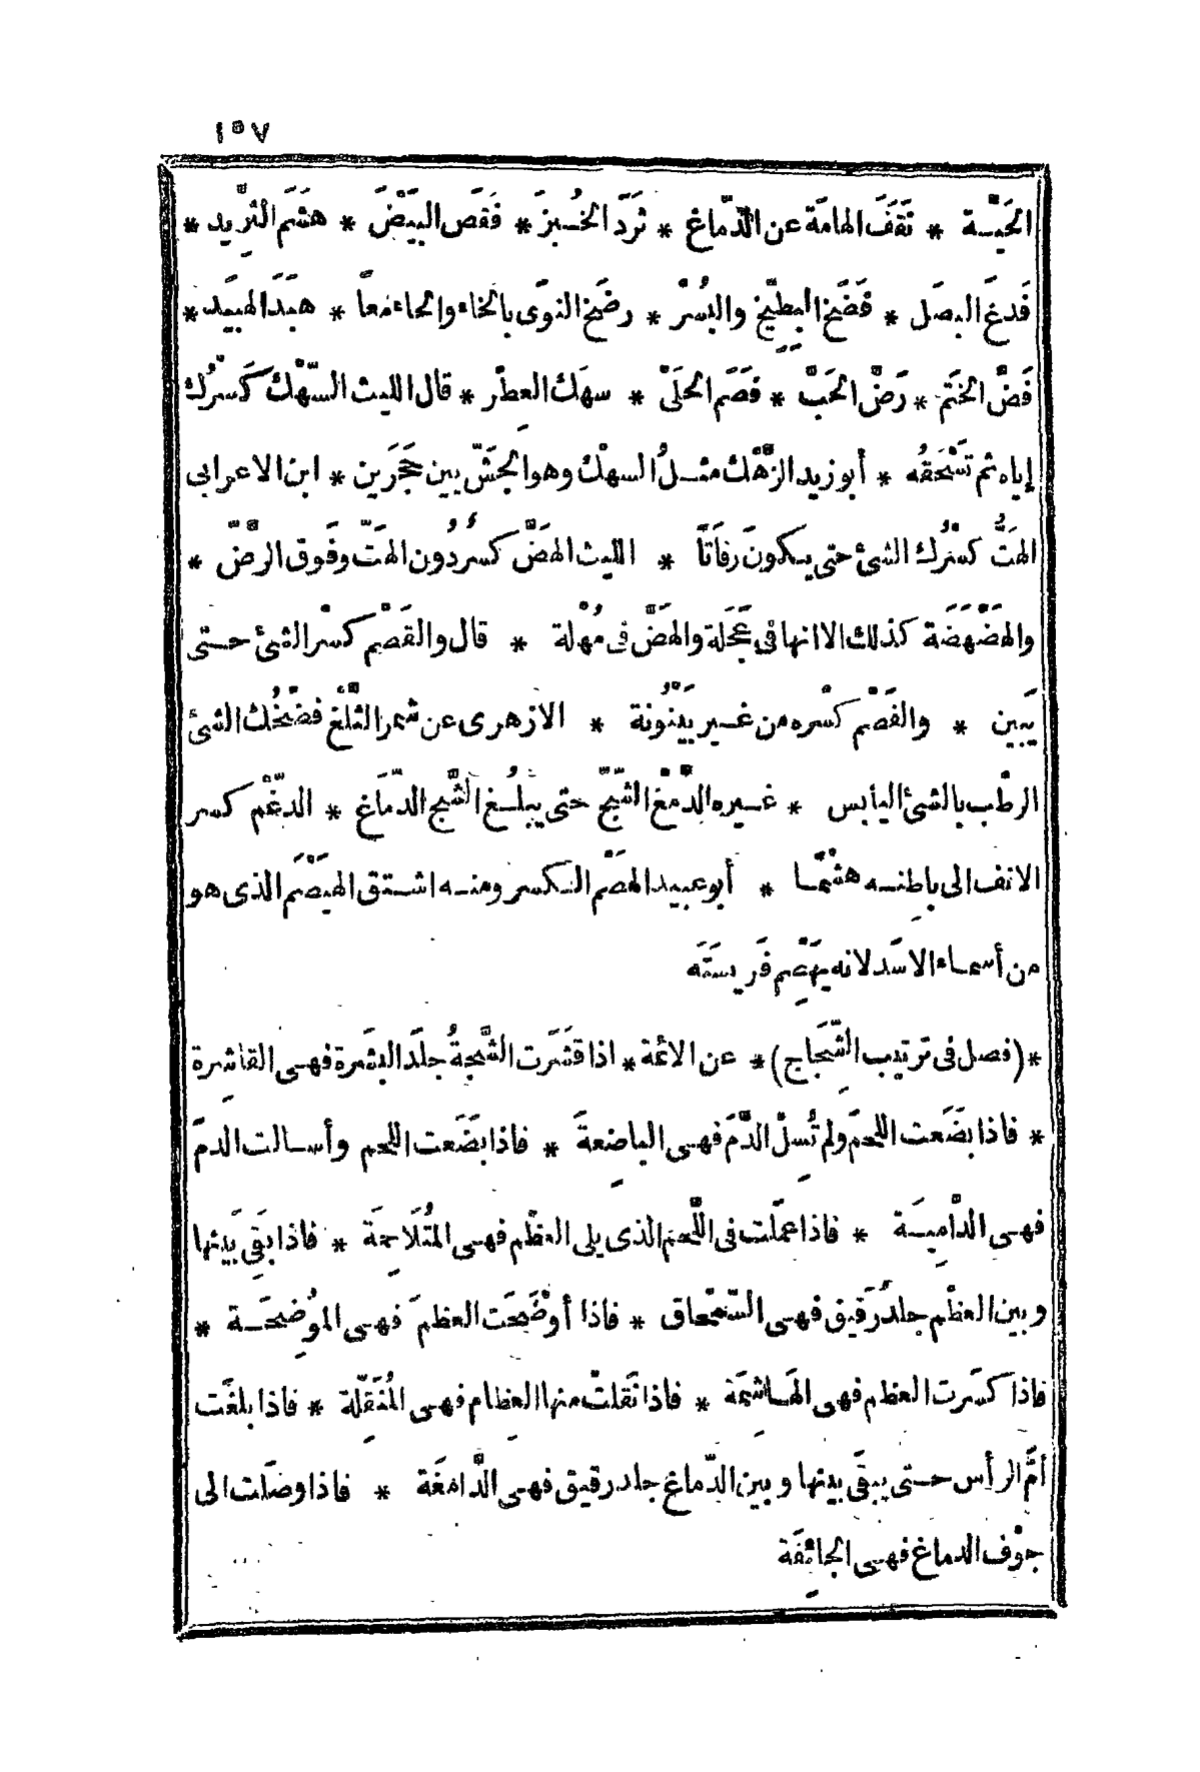 ١٥٧
الحَيَّـة * نَقَفَ الهامَةَ عن الدّماغ * ثَرَدَ الخُـبزَ * فَقَصَ البَيْضَ * هشَمَ الثَّرِيد *
فَدغَ البصَل * فَضَخَ البِطِّيخ والبُسْرَ * رضَخ النوَى بالخاء والحاء معاً * هبَدَ الهبِيَد *
فَضَّ الختَم * رَضَّ الحَبَّ * فصَم الحَلَىْ * سهَك العِطْر * قال الليث السّهْك كَسْرُك
إياه ثم تَسْحَقُه * أبو زيد الزَّهْك مثـلُ السهْك وهو الجَشّ بين حَجَرَين * ابن الاعرابى
الهَتُّ كسْرُك الشئ حتى يـكونَ رفَاتاً * الليث الهَضّ كسْرٌ دُون الهَتّ وفَوق الرَّضّ *
والهَضْهَضَة كذلك الا انها فى عَجَلة والهَضّ فى مُهْلة * قال والقَصْم كسْر الشئ حـتى
يَبين * والفَصْم كسْره من غـير بَيْنُونة * الازهرى عن شمر الثَّلْغ فضْخُك الشئ
الرطْب بالشئ اليابس * غـيره الدَّمْغ الشَّجّ حتى يبلُـغ الشَّج الدّمَاغ * الدغْم كسر
الانف الى باطنِـه هشْمًـا * أبو عبيد الهصْم الـكسر ومنـه اشـتق الهيْصَم الذى هو
من أسمـاء الاسَد لانه يهْصِم فَريستَه
*(فصل فى ترتيب الشِّجَاج)* عن الائمة * اذا قشَرَت الشَّجةُ جلَد البشَرة فهـى القاشِرة
* فاذا بضَعَت اللحمَ ولم تُسِلْ الدَّمَ فهـى الباضِعةَ * فاذا بضَعَت اللحم وأسـالت الدمَ
فهـى الدْامِيَـة * فاذا عمَلت فى اللَّحْم الذى يلى العظْم فهـى المُتَلَاحِمَة * فاذا بقَى بَينها
وبين العظْم جلدٌ رَقيق فهـى السّمْحاق * فاذا أوْضَحَت العظمَ فهـى الموُضِحَـة *
فاذا كسَرت العظم فهى الهَـاشِمَة * فاذا نَقلَتْ منها العِظام فهـى المُنَقِّلة * فاذا بلغَت
أمَّ الرأس حـتى يبقَى بينها وبين الدّماغ جلد رقيق فهى الدَّامغَة * فاذا وصَلت الى
جوْف الدماغ فهـى الجائِفَة